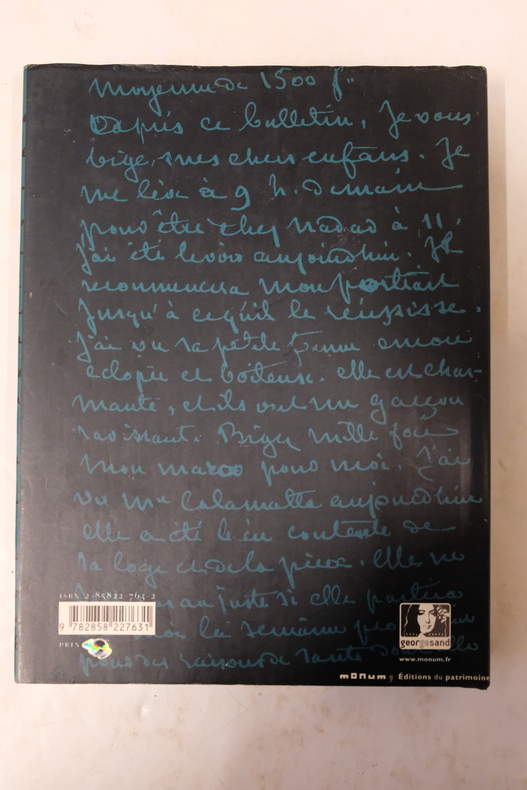 moyenne de 1500 f..
Daprés ce bulletin, Je vous
bige, mes chers enfans. Je
me lève à 9 h. demain
pour être chez nadar à 11,
j'ai été le voir aujourdhui. Il
recommencera mon portrait
Jusqu'à cequ'il le réussisse.
j'ai vu sa petite femme encore
éclopée et boiteuse. elle est char-
mante, et ils ont un garçon
ravissant. Bigez mille fois
mon maroo pour moi. J'ai
vu Me Calamatta aujourdhui
elle a été bien contente de
sa loge et de la pièce. Elle ne
au juste si elle partira
la semaine
pour des raisons de santé
ISBN 2-85822-763-2
9 782858 227631
PRIX
georgesand
www.monum.fr
monum, Éditions du patrimoine